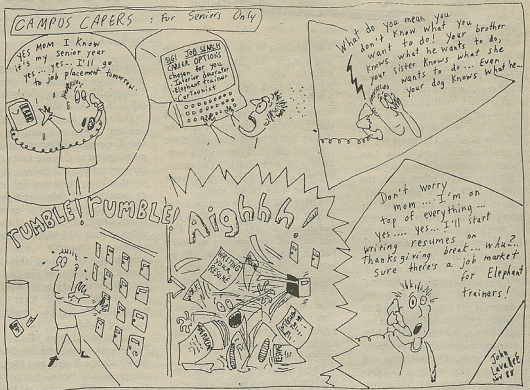 CAMPUS CAPERS : For Seniors Only
YES MOM I know
it's my senior year
yes... yes.. I'll go
to job placement tomorrow.
SIGI JOB SEARCH
CAREER OPTIONS
chosen for you
- Interior decorator
- Elephant trainer
- Cartoonist
What do you mean you
don't know what you
want to do! your brother
knows what he wants to do,
your sister knows what she
wants to do.... Even
your dog knows what he...
RUMBLE! RUMBLE!
Aighhh!
WRITING
YOUR
RESUME
Don't worry
mom... I'm on
top of everything...
yes.... yes... I'll start
writing resumes on
Thanksgiving break... Wha..?
sure there's a job market
for Elephant
trainers!
John
Lavallee
Nov 88